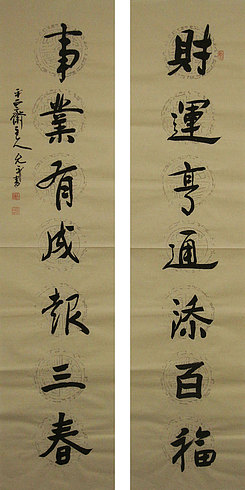 財運亨通添百福
事業有成報三春